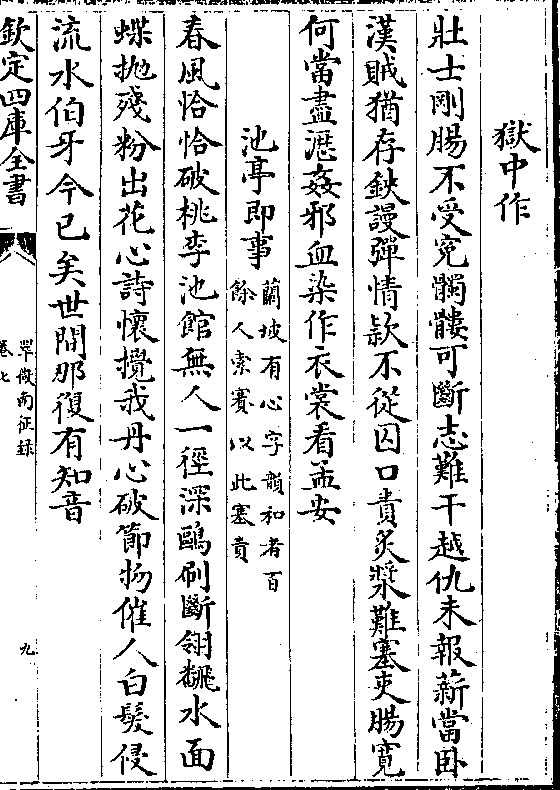 獄中作
壯士剛腸不受寃髑髏可斷志難干越仇未報薪當卧
漢賊猶存鋏謾彈情欵不從囚口責炙漿難塞吏腸寛
何當盡瀝姦邪血染作衣裳看孟安
池亭即事
蘭坡有心字韻和者百
餘人索賽以此塞責
春風恰恰破桃李池館無人一徑深鷗刷斷翎飜水面
蝶抛殘粉出花心詩懷攪我丹心破節物催人白髮侵
流水伯牙今已矣世間那復有知音
欽定四庫全書
卷七
九